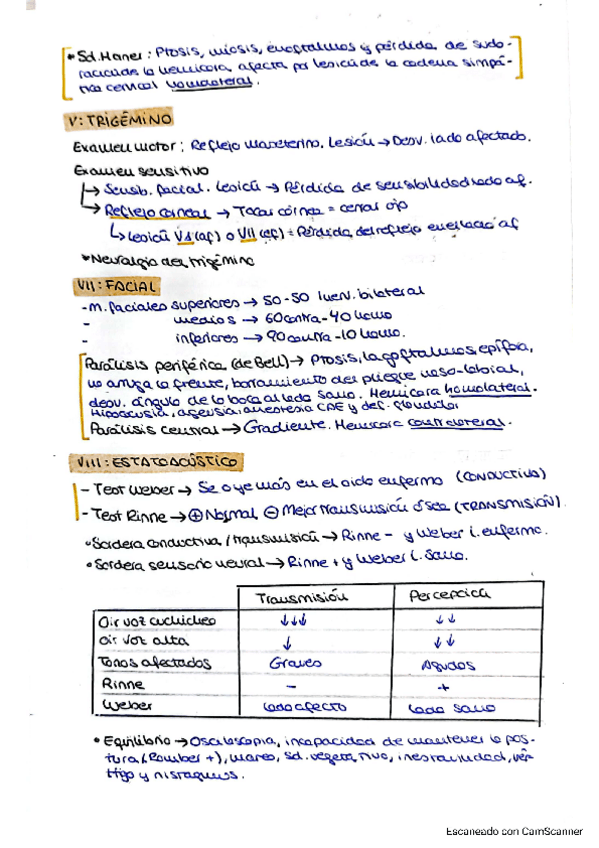 *Sd. Horner: Ptosis, miosis, enoftalmos y pérdida de sudo-
ración de la hemicara, afecta por lesión de la cadena simpá-
tica cervical homolateral.
V: TRIGÉMINO
Examen motor: Reflejo maseterino. Lesión → Desv. lado afectado.
Examen sensitivo
↳ Sensib. facial. Lesión → Pérdida de sensibilidad lado af.
↳ Reflejo corneal → Tocar córnea = cerrar ojo
↳ Lesión V1 (af) o VII (ef) = Pérdida del reflejo en el lado af
*Neuralgia del trigémino
VII: FACIAL
- M. faciales superiores → 50-50 Inerv. bilateral
- medios → 60 contra-40 homo
- inferiores → 90 contra-10 homo.
Parálisis periférica (de Bell) → Ptosis, lagoftalmos, epífora,
no arruga la frente, borramiento del pliegue naso-labial,
desv. ángulo de la boca al lado sano. Hemicara homolateral.
Hipoacusia, ageusia, anestesia CAE y def. glandular
Parálisis central → Gradiente. Hemicara contralateral.
VIII: ESTATOACÚSTICO
- Test Weber → Se oye más en el oido enfermo (CONDUCTIVA)
- Test Rinne → ⊕ Normal ⊖ Mejor transmisión ósea (TRANSMISIÓN).
• Sordera conductiva / transmisión → Rinne - y Weber l. enfermo.
• Sordera sensorio neural → Rinne + y Weber l. sano.
Transmisión Percepción
Oir voz cuchicheo ↓↓↓ ↓↓
Oir voz alta ↓ ↓↓
Tonos afectados Graves Agudos
Rinne - +
Weber Lado afecto Lado sano
• Equilibrio → Osciloscopia, incapacidad de mantener la pos-
tura (Romber +), mareo, sd. vegetativo, inestabilidad, vér-
tigo y nistagmus.
Escaneado con CamScanner